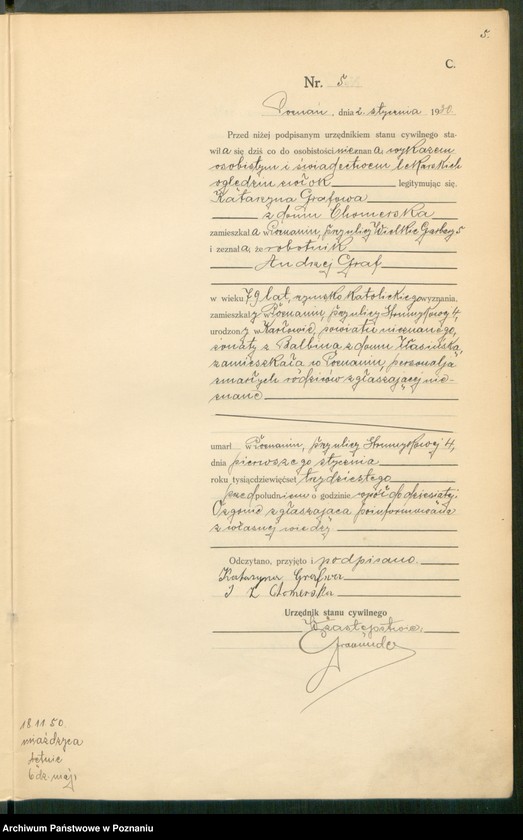 5.
C.
Nr. 5
Poznań, dnia 2. stycznia 1930.
Przed niżej podpisanym urzędnikiem stanu cywilnego sta-
wiła się dziś co do osobistości nieznana, wykazem
osobistym i świadectwem lekarskich
oględzin zwłok legitymując się.
Katarzyna Grafowa
z domu Chomerska
zamieszkała w Poznaniu, przy ulicy Wielkie Garbary 5
i zeznała, że robotnik
Andrzej Graf
w wieku 79 lat, rzymsko katolickiego wyznania,
zamieszkały w Poznaniu, przy ulicy 4,
urodzony w Karłowie, powiatu nieznanego,
żonaty z Balbiną z domu
zamieszkała w Poznaniu, personalja
zmarłych rodziców zgłaszającej nie-
znane
umarł w Poznaniu, przy ulicy 4,
dnia pierwszego stycznia
roku tysiącdziewięćset trzydziestego
przed południem o godzinie wpół do dziesiątej.
O zgonie zgłaszająca poinformowana
z własnej wiedzy
Odczytano, przyjęto i podpisano.
Katarzyna Grafwa
Z Chomerska
Urzędnik stanu cywilnego
W zastępstwie:
18 11 50
miażdżyca
tętnic
Archiwum Państwowe w Poznaniu